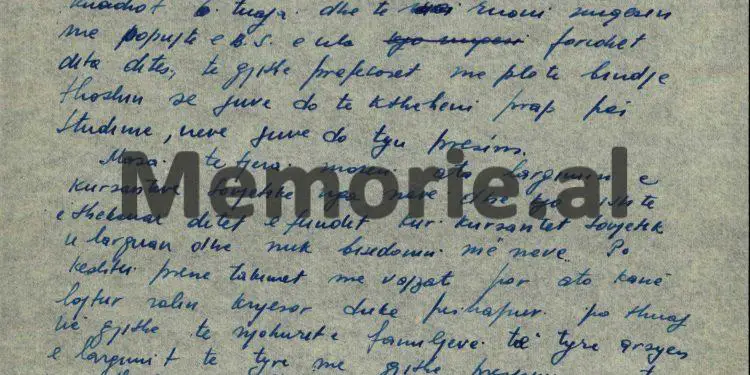 kuadrot b. tuaja. dhe te ruani miqesin
me popujt e B.S. e cila forcohet
dita dites, te gjithe profesoret me plote bindje
thoshin se juve do te ktheheni prap për
studime, neve juve do tju presim.
Masa te tjera moren ato largimin e
kursanteve sovjetike nga neve dhe kjo ishte
e theksuar ditet e fundit kur kursantet sovjetik
u larguan dhe nuk bisedonin me neve. Po
keshtu prene takimet me vajzat por ato kanë
lojtur rolin kryesor duke perhapur po thuaj
në gjithe te njohurit e familjeve të tyre arsyen
e largimit te tyre me gjithe
Memorie.al